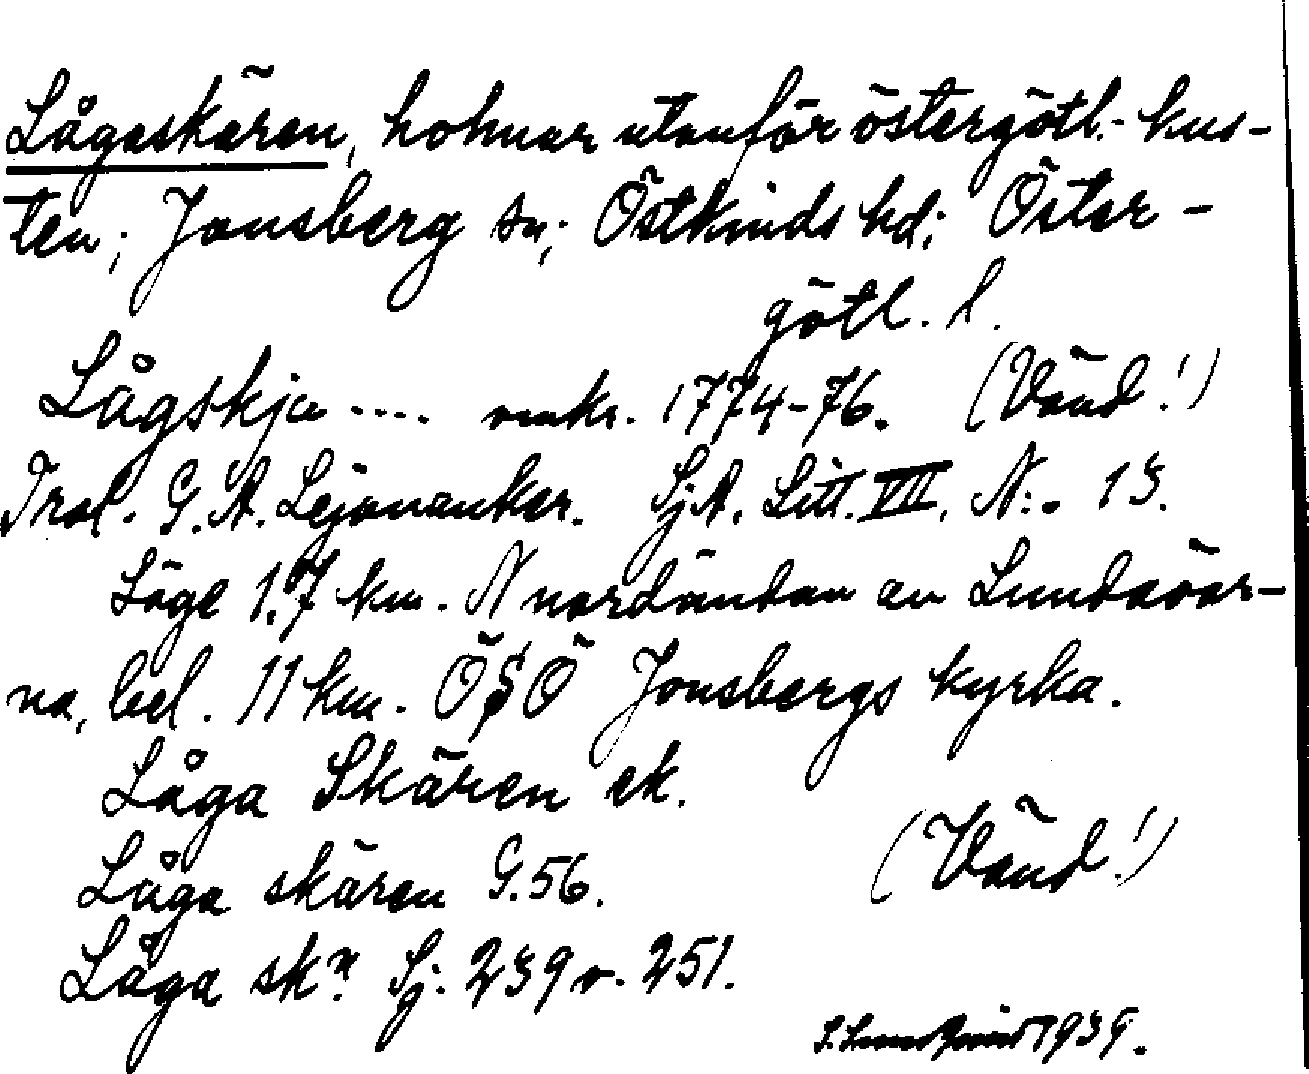 Lågaskären, holmar utanför östergötl.-kus-
ten; Jonsberg sn; Östkinds hd; Öster-
götl. l.
Lågskja .... omkr. 1774-76. (Vänd!)
Trol. G. A. Lejonanker. Sj.A. Litt. VII, N:o 13.
Läge 1,7 km. N nordändan av Lundaöar-
na, bel. 11 km. ÖSÖ Jonsbergs kyrka.
Låga Skären ek.
Låga skären G.56. (Vänd!)
Låga skn Sj. 239 o. 251.
1939.